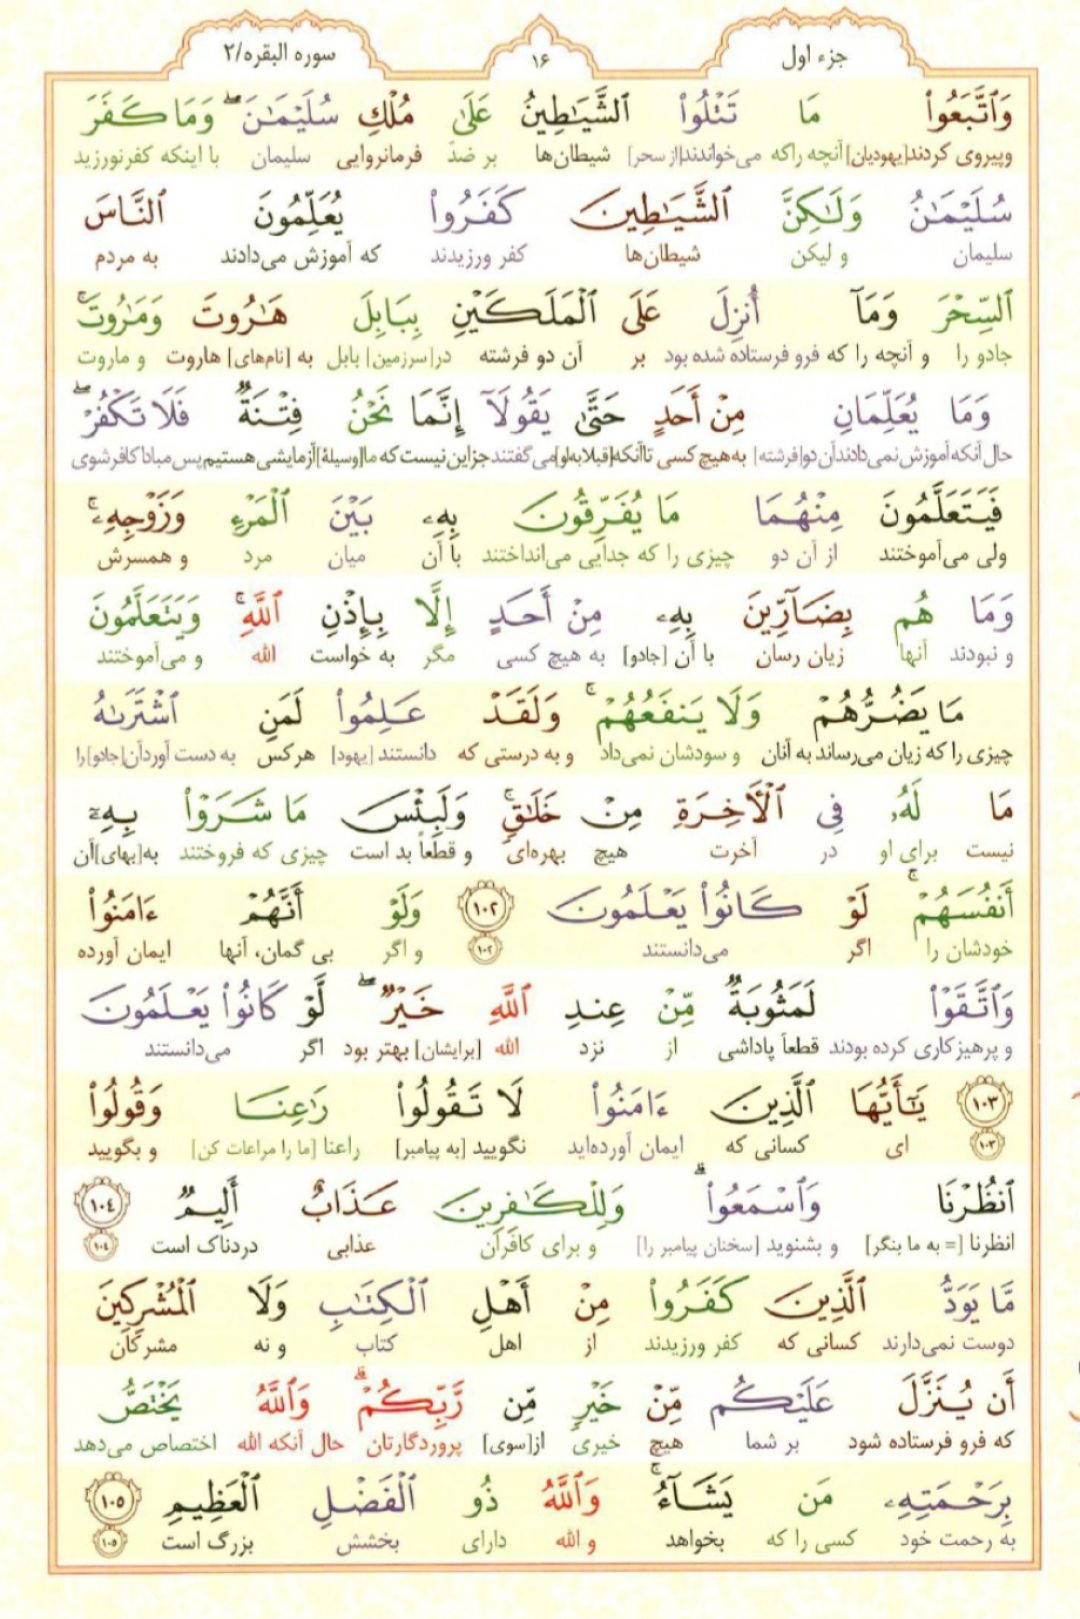 جزء اول
١۶
سوره البقره/٢
وَٱتَّبَعُواْ مَا تَتۡلُواْ ٱلشَّيَٰطِينُ عَلَىٰ مُلۡكِ سُلَيۡمَٰنَۖ وَمَا كَفَرَ
وپیروی کردند[یهودیان] آنچه راکه می‌خواندند[از سحر] شیطان‌ها بر ضدّ فرمانروایی سلیمان با اینکه کفرنورزید
سُلَيۡمَٰنُ وَلَٰكِنَّ ٱلشَّيَٰطِينَ كَفَرُواْ يُعَلِّمُونَ ٱلنَّاسَ
سلیمان و لیکن شیطان‌ها کفر ورزیدند که آموزش می‌دادند به مردم
ٱلسِّحۡرَ وَمَآ أُنزِلَ عَلَى ٱلۡمَلَكَيۡنِ بِبَابِلَ هَٰرُوتَ وَمَٰرُوتَۚ
جادو را و آنچه را که فرو فرستاده شده بود بر آن دو فرشته در[سرزمین] بابل به [نام‌های] هاروت و ماروت
وَمَا يُعَلِّمَانِ مِنۡ أَحَدٍ حَتَّىٰ يَقُولَآ إِنَّمَا نَحۡنُ فِتۡنَةٞ فَلَا تَكۡفُرۡۖ
حال آنکه آموزش نمی‌دادند آن دو[فرشته] به هیچ کسی تا آنکه[قبلا به او] می گفتند جز این نیست که ما[وسیلهٔ] آزمایشی هستیم پس مبادا کافر شوی
فَيَتَعَلَّمُونَ مِنۡهُمَا مَا يُفَرِّقُونَ بِهِۦ بَيۡنَ ٱلۡمَرۡءِ وَزَوۡجِهِۦۚ
ولی می‌آموختند از آن دو چیزی را که جدایی می‌انداختند با آن میان مرد و همسرش
وَمَا هُم بِضَآرِّينَ بِهِۦ مِنۡ أَحَدٍ إِلَّا بِإِذۡنِ ٱللَّهِۚ وَيَتَعَلَّمُونَ
و نبودند آنها زیان رسان با آن [جادو] به هیچ کسی مگر به خواست الله و می‌آموختند
مَا يَضُرُّهُمۡ وَلَا يَنفَعُهُمۡۚ وَلَقَدۡ عَلِمُواْ لَمَنِ ٱشۡتَرَىٰهُ
چیزی را که زیان می‌رساند به آنان و سودشان نمی‌داد و به درستی که دانستند [یهود] هرکس به دست آورد آن[جادو] را
مَا لَهُۥ فِي ٱلۡأٓخِرَةِ مِنۡ خَلَٰقٖۚ وَلَبِئۡسَ مَا شَرَوۡاْ بِهِۦٓ
نیست برای او در آخرت هیچ بهره‌ای و قطعاً بد است چیزی که فروختند به[بهای] آن
أَنفُسَهُمۡۚ لَوۡ كَانُواْ يَعۡلَمُونَ ١٠٢ وَلَوۡ أَنَّهُمۡ ءَامَنُواْ
خودشان را اگر می‌دانستند ١٠٢ و اگر بی گمان، آنها ایمان آورده
وَٱتَّقَوۡاْ لَمَثُوبَةٞ مِّنۡ عِندِ ٱللَّهِ خَيۡرٞۖ لَّوۡ كَانُواْ يَعۡلَمُونَ
و پرهیزکاری کرده بودند قطعاً پاداشی از نزد الله [برایشان] بهتر بود اگر می‌دانستند
١٠٣ يَٰٓأَيُّهَا ٱلَّذِينَ ءَامَنُواْ لَا تَقُولُواْ رَٰعِنَا وَقُولُواْ
١٠٣ ای کسانی که ایمان آورده‌اید نگویید [به پیامبر] راعنا [ما را مراعات کن] و بگویید
ٱنظُرۡنَا وَٱسۡمَعُواْۗ وَلِلۡكَٰفِرِينَ عَذَابٌ أَلِيمٞ ١٠٤
انظرنا [= به ما بنگر] و بشنوید [سخنان پیامبر را] و برای کافران عذابی دردناک است ١٠٤
مَّا يَوَدُّ ٱلَّذِينَ كَفَرُواْ مِنۡ أَهۡلِ ٱلۡكِتَٰبِ وَلَا ٱلۡمُشۡرِكِينَ
دوست نمی‌دارند کسانی که کفر ورزیدند از اهل کتاب و نه مشرکان
أَن يُنَزَّلَ عَلَيۡكُم مِّنۡ خَيۡرٖ مِّن رَّبِّكُمۡۗ وَٱللَّهُ يَخۡتَصُّ
که فرو فرستاده شود بر شما هیچ خیری از[سوی] پروردگارتان حال آنکه الله اختصاص می‌دهد
بِرَحۡمَتِهِۦ مَن يَشَآءُۚ وَٱللَّهُ ذُو ٱلۡفَضۡلِ ٱلۡعَظِيمِ ١٠٥
به رحمت خود کسی را که بخواهد و الله دارای بخشش بزرگ است ١٠٥